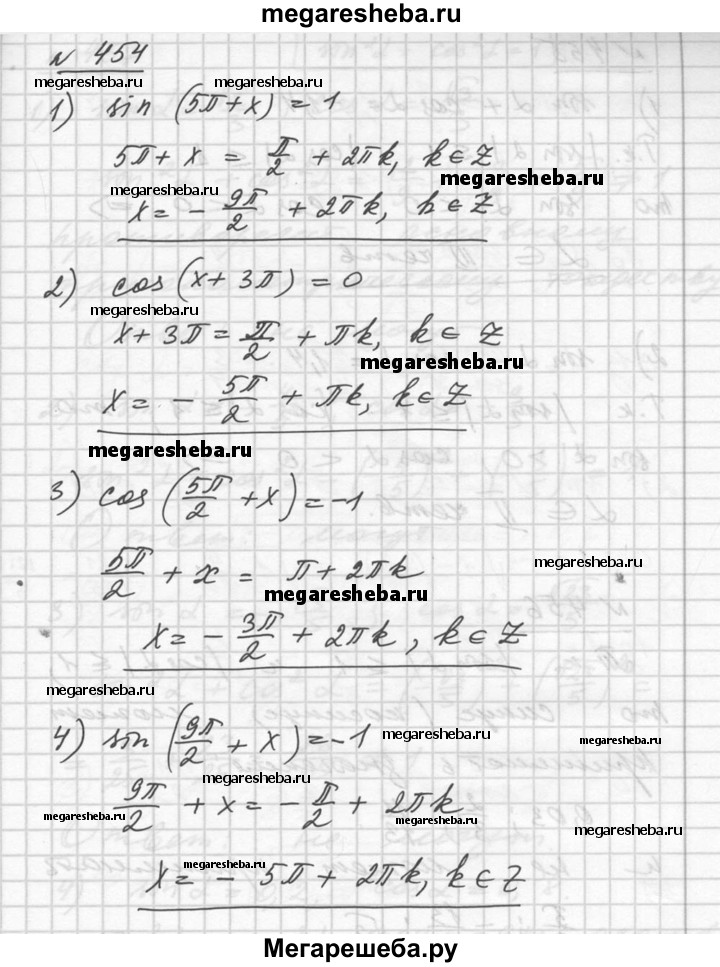 megaresheba.ru
№ 454
megaresheba.ru megaresheba.ru
1) sin (5π+x) = 1
5π + x = π/2 + 2πk, k∈Z
megaresheba.ru megaresheba.ru
x = - 9π/2 + 2πk, k∈Z
2) cos (x + 3π) = 0
megaresheba.ru
x + 3π = π/2 + πk, k∈ Z
megaresheba.ru
x = - 5π/2 + πk, k∈Z
megaresheba.ru
3) cos (5π/2 + x) = -1
megaresheba.ru
5π/2 + x = π + 2πk
megaresheba.ru
x = - 3π/2 + 2πk, k∈Z
megaresheba.ru
4) sin (9π/2 + x) = -1
megaresheba.ru
megaresheba.ru
9π/2 + x = - π/2 + 2πk
megaresheba.ru megaresheba.ru megaresheba.ru
megaresheba.ru
x = - 5π + 2πk, k∈Z
Мегарешеба.ру